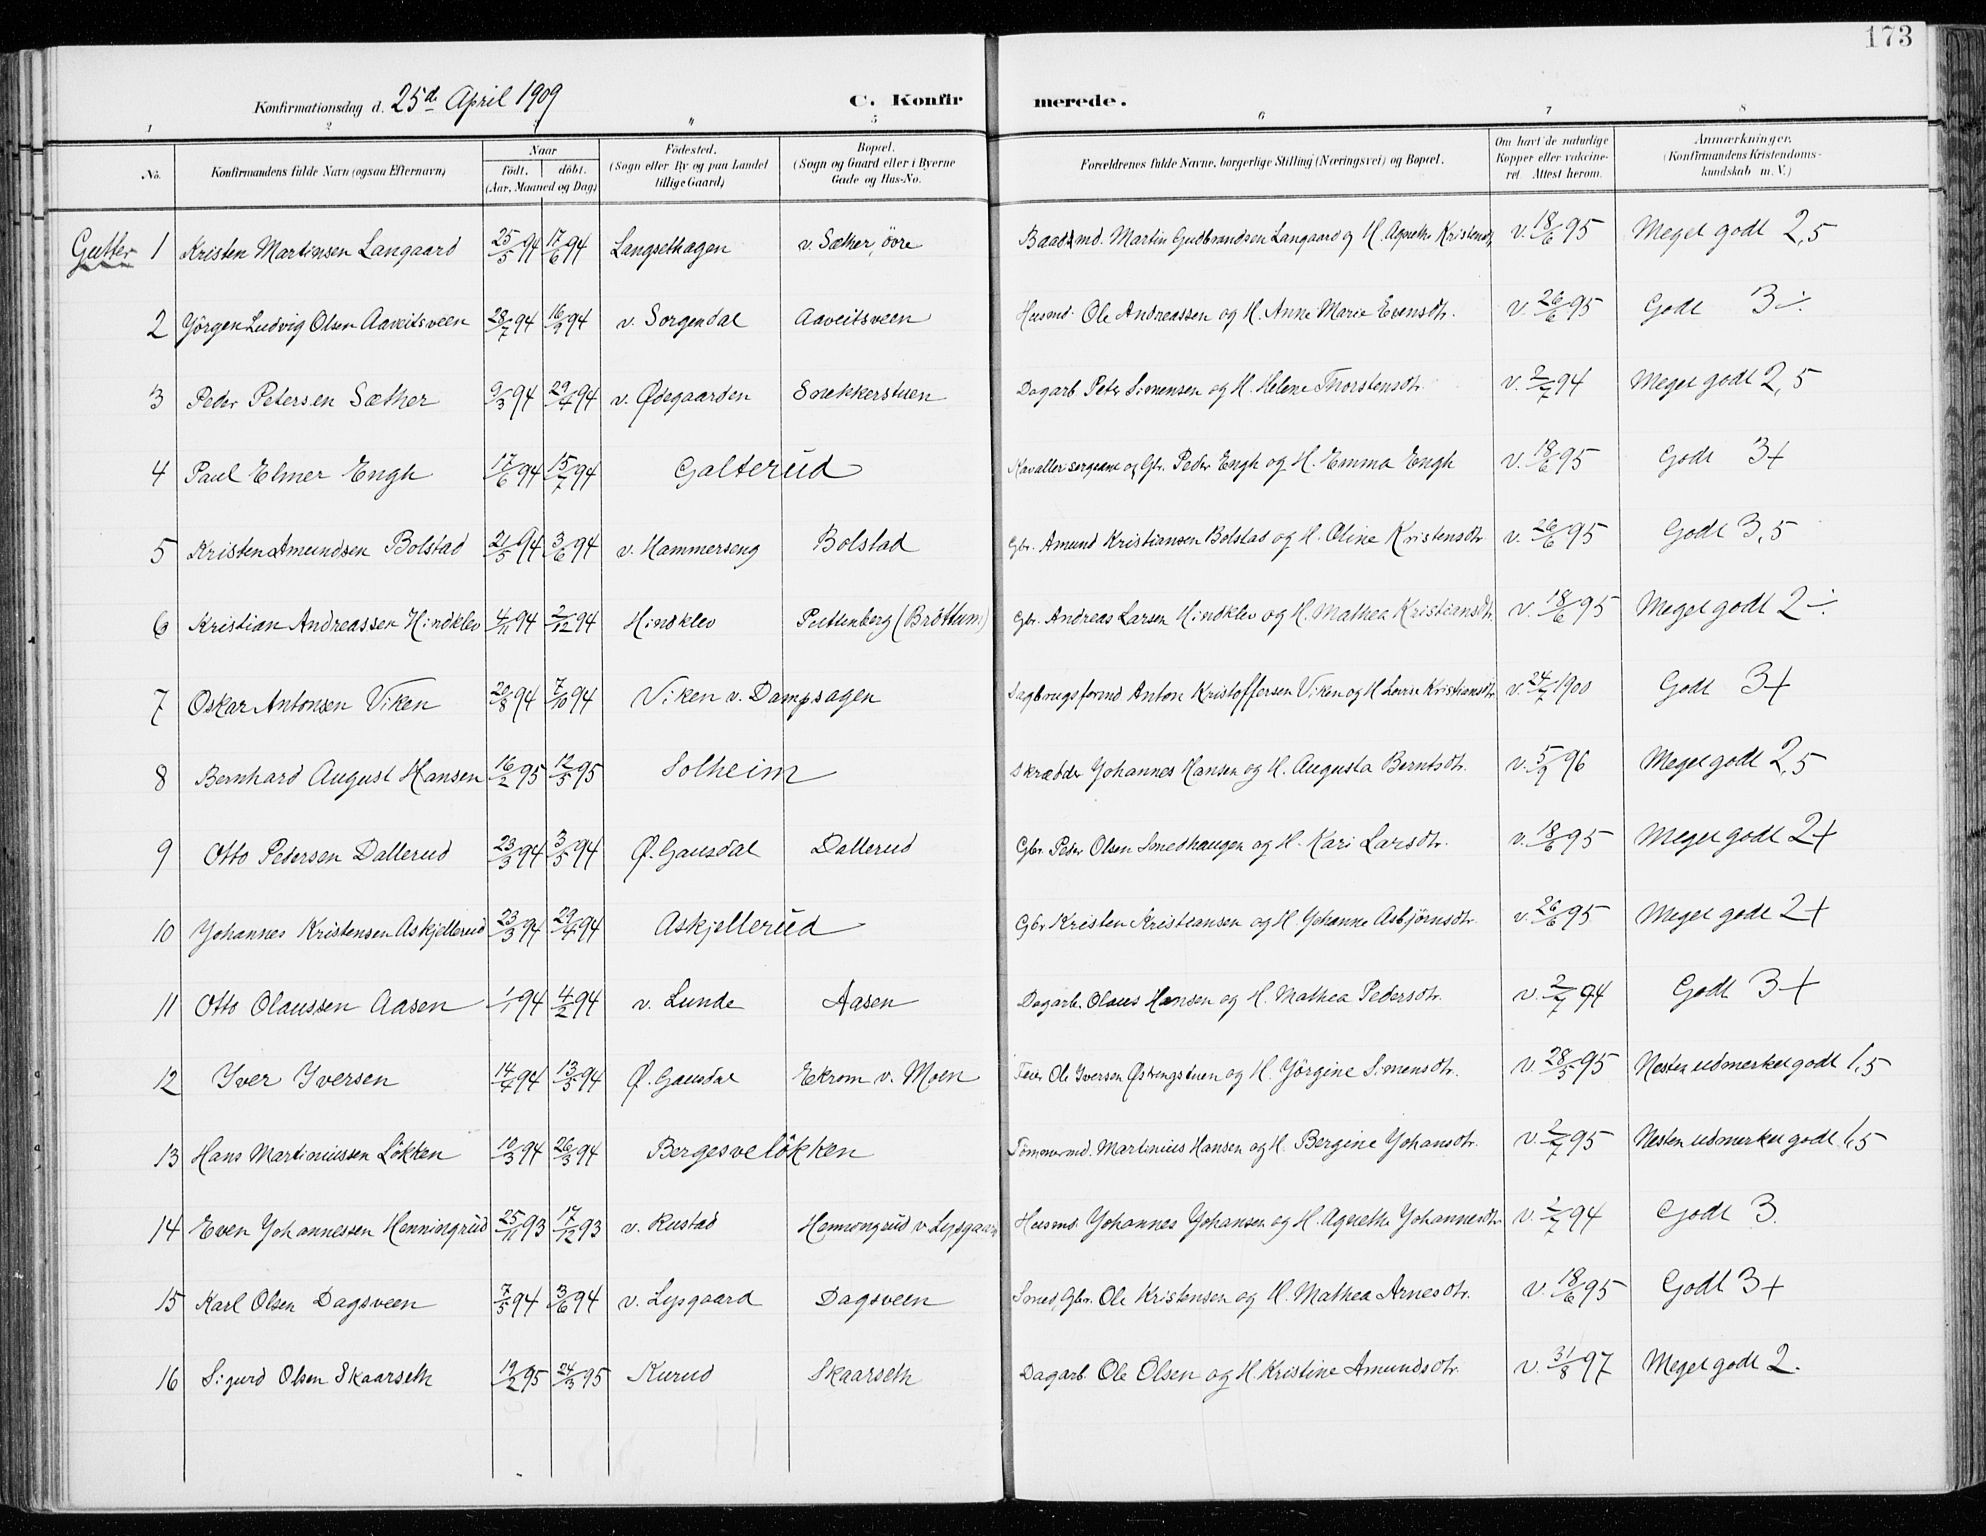 173
Konfirmationsdag d. 25de April 1909 C. Konfirmerede.
1 2 3 4 5 6 7 8
No. Konfirmandens fulde Navn (ogsaa Efternavn) Naar født. døbt. (Aar, Maaned og Dag) Fødested. (Sogn eller By og paa Landet tillige Gaard) Bopæl. (Sogn og Gaard eller i Byerne Gade og Hus-No. Forældrenes fulde Navne, borgerlige Stilling (Næringsvei) og Bopæl. Om havt de naturlige Kopper eller vakcineret. Attest herom. Anmærkninger. (Konfirmandens Kristendomskundskab m. V.)
Gutter 1 Kristen Martinsen Langaard 25/5 94 17/6 94 Langsethagen v. Sæther, övre Baadsmd. Martin Gudbrandsen Langaard og H. Agnethe Kristensdtr v. 18/6 95 Meget godt 2,5
2 Jörgen Ludvig Olsen Aaveitsveen 28/7 94 16/9 94 v. Sorgendal Aaveitsveen Husmd. Ole Andreassen og H. Anne Marie Evensdtr. v. 26/6 95 Godt 3÷
3 Peder Petersen Sæther 9/3 94 29/4 94 v. Ødegaarden Snekkerstuen Dagarb. Peter Simensen og H. Helene Thorstensdtr. v. 2/7 94 Meget godt 2,5
4 Paul Elmer Engh 17/6 94 15/7 94 Galterud Kavallersergeant og Gbr. Peder Engh og H. Emma Engh v. 18/6 95 Godt 3+
5 Kristen Amundsen Bolstad 21/5 94 3/6 94 v. Hammerseng Bolstad Gbr. Amund Kristiansen Bolstad og H. Oline Kristensdtr v. 26/6 95 Godt 3,5
6 Kristian Andreassen Hindklev 4/11 94 2/12 94 Hindklev Puttenberg (Bröttum) Gbr. Andreas Larsen Hindklev og H. Mathea Kristiansdtr. v. 18/6 95 Meget godt 2÷
7 Oskar Antonsen Viken 20/8 94 7/10 94 Viken v. Dampsagen Sagbrugsformd Anton Kristoffersen Viken og H Lovise Kristiansdtr v. 24/7 1900 Godt 3+
8 Bernhard August Hansen 16/2 95 12/5 95 Solheim Skrædder Johannes Hansen og H. Augusta Berntsdtr. v. 5/9 96 Meget godt 2,5
9 Otto Pedersen Dallerud 23/3 94 3/5 94 Ø. Gausdal Dallerud Gbr. Peder Olsen Smedhaugen og H. Kari Larsdtr. v. 18/6 95 Meget godt 2+
10 Johannes Kristensen Askjellerud 23/3 94 29/4 94 Askjellerud Gbr Kristen Kristiansen og H Johanne Asbjörnsdtr. v. 26/6 95 Meget godt 2+
11 Otto Olaussen Aasen 1/1 94 4/2 94 v. Lunde Aasen Dagarb. Olaus Hansen og H. Mathea Pedersdtr. v. 2/7 94 Godt 3+
12 Iver Iversen 14/4 94 13/5 94 Ø. Gausdal Ekrom v. Moen Ole Iversen Østengstuen og H. Jörgine Simensdtr. v. 28/5 95 Nesten udmerket godt 1,5
13 Hans Martiniussen Lökken 10/3 94 26/3 94 Bergesvelökken Tömmermd. Martinius Hansen og H. Bergine Johansdtr. v. 2/7 95 Nesten udmerket godt 1,5
14 Even Johannessen Henningrud 25/11 93 17/12 93 v. Rustad Henningrud v Lysgaard Husmd. Johannes Johansen og H. Agnethe Johannesdtr v. 2/7 94 Godt 3.
15 Karl Olsen Dagsveen 7/5 94 3/6 94 v. Lysgaard Dagsveen Smed, Gbr. Ole Kristensen og H. Mathea Arnesdtr. v. 18/6 95 Godt 3+
16 Sigurd Olsen Skaarseth 19/2 95 24/3 95 Kurud Skaarseth Dagarb. Ole Olsen og H. Kristine Amundsdtr. v. 31/8 97 Meget godt 2.